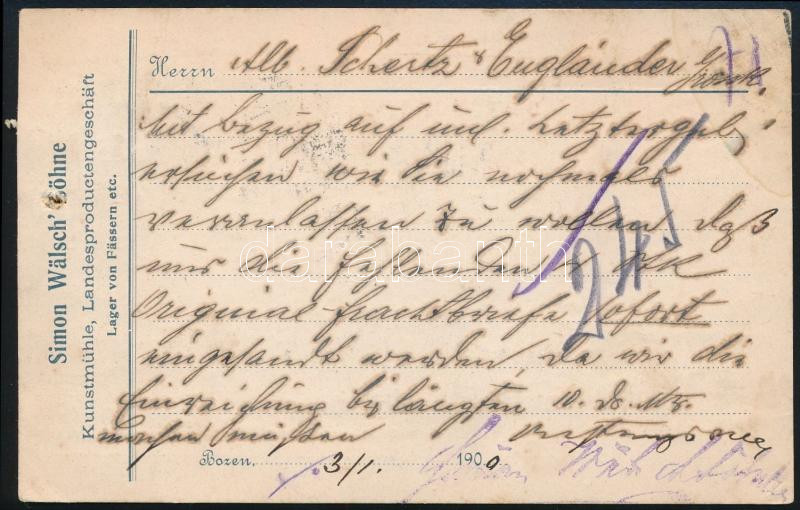 Simon Wälsch' Söhne
Kunstmühle, Landesproductengeschäft
Lager von Fässern etc.
Herrn Alb. Schertz & Engländer
Mit Bezug auf uns. Letztergeb.
ersuchen wir Sie nochmals
veranlassen zu wollen daß
uns die fehlenden
Original Frachtbriefe sofort
eingesandt werden, da wir die
Einreichung bis längstens 10. ds. Mts.
machen müssen
Bozen, 3/1. 1900
darabanth